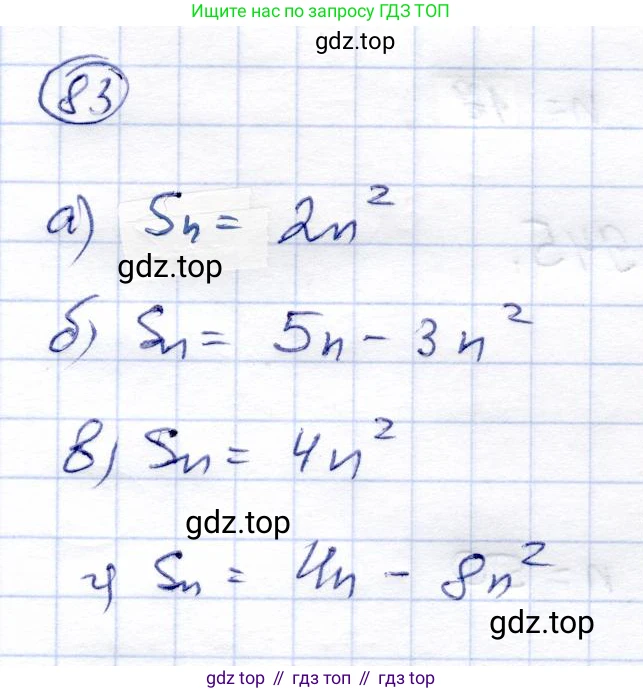 Ищите нас по запросу ГДЗ ТОП
gdz.top
83
а) Sn = 2n²
gdz.top
б) Sn = 5n - 3n²
в) Sn = 4n²
gdz.top
г) Sn = 4n - 8n²
gdz.top
gdz top // гдз топ // гдз.top